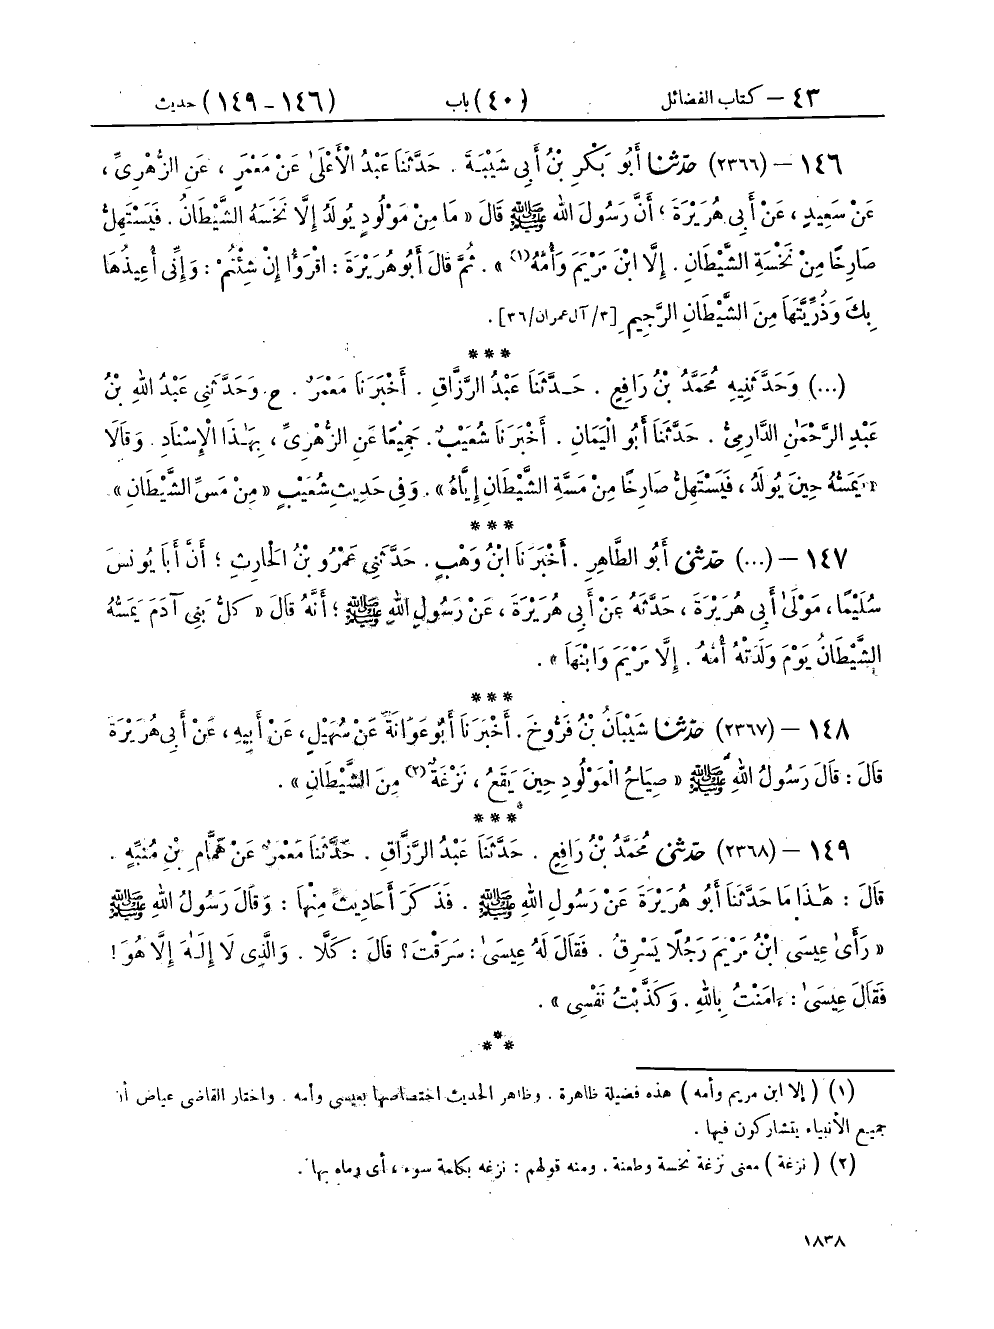 ٤٣ - كتاب الفضائل (٤٠) باب (١٤٦ - ١٤٩) حديث
١٤٦ - (٢٣٦٦) حَدَّثَنَا أَبُو بَكْرِ بْنُ أَبِي شَيْبَةَ . حَدَّثَنَا عَبْدُ الْأَعْلَىٰ عَنْ مَعْمَرٍ ، عَنِ الزُّهْرِىِّ ،
عَنْ سَعِيدٍ ، عَنْ أَبِى هُرَيْرَةَ ؛ أَنَّ رَسُولَ اللهِ ﷺ قَالَ « مَا مِنْ مَوْلُودٍ يُولَدُ إِلَّا نَخَسَهُ الشَّيْطَانُ . فَيَسْتَهِلُّ
صَارِخًا مِنْ نَخْسَةِ الشَّيْطَانِ . إِلَّا ابْنَ مَرْيَمَ وَأُمَّهُ(١) » . ثُمَّ قَالَ أَبُو هُرَيْرَةَ : اقْرَؤُا إِنْ شِئْتُمْ : وَإِنِّى أُعِيذُهَا
بِكَ وَذُرِّيَّتَهَا مِنَ الشَّيْطَانِ الرَّجِيمِ [٣/آل عمران/٣٦] .
***
(...) وَحَدَّثَنِيهِ مُحَمَّدُ بْنُ رَافِعٍ . حَدَّثَنَا عَبْدُ الرَّزَّاقِ . أَخْبَرَنَا مَعْمَرٌ . ح وَحَدَّثَنِى عَبْدُ اللهِ بْنُ
عَبْدِ الرَّحْمَٰنِ الدَّارِمِىُّ . حَدَّثَنَا أَبُو الْيَمَانِ . أَخْبَرَنَا شُعَيْبٌ . جَمِيعًا عَنِ الزُّهْرِىِّ ، بِهَٰذَا الْإِسْنَادِ . وَقَالَا
« يَمَسُّهُ حِينَ يُولَدُ ، فَيَسْتَهِلُّ صَارِخًا مِنْ مَسَّةِ الشَّيْطَانِ إِيَّاهُ » . وَفِى حَدِيثِ شُعَيْبٍ « مِنْ مَسِّ الشَّيْطَانِ » .
***
١٤٧ - (...) حَدَّثَنِى أَبُو الطَّاهِرِ . أَخْبَرَنَا ابْنُ وَهْبٍ . حَدَّثَنِى عَمْرُو بْنُ الْحَارِثِ ؛ أَنَّ أَبَا يُونُسَ
سُلَيْمًا ، مَوْلَىٰ أَبِى هُرَيْرَةَ ، حَدَّثَهُ عَنْ أَبِى هُرَيْرَةَ ، عَنْ رَسُولِ اللهِ ﷺ ؛ أَنَّهُ قَالَ « كُلُّ بَنِى آدَمَ يَمَسُّهُ
الشَّيْطَانُ يَوْمَ وَلَدَتْهُ أُمُّهُ . إِلَّا مَرْيَمَ وَابْنَهَا » .
***
١٤٨ - (٢٣٦٧) حَدَّثَنَا شَيْبَانُ بْنُ فَرُّوخَ . أَخْبَرَنَا أَبُو عَوَانَةَ عَنْ سُهَيْلٍ ، عَنْ أَبِيهِ ، عَنْ أَبِى هُرَيْرَةَ
قَالَ : قَالَ رَسُولُ اللهِ ﷺ « صِيَاحُ الْمَوْلُودِ حِينَ يَقَعُ ، نَزْغَةٌ(٢) مِنَ الشَّيْطَانِ » .
***
١٤٩ - (٢٣٦٨) حَدَّثَنِى مُحَمَّدُ بْنُ رَافِعٍ . حَدَّثَنَا عَبْدُ الرَّزَّاقِ . حَدَّثَنَا مَعْمَرٌ عَنْ هَمَّامِ بْنِ مُنَبِّهٍ .
قَالَ : هَٰذَا مَا حَدَّثَنَا أَبُو هُرَيْرَةَ عَنْ رَسُولِ اللهِ ﷺ . فَذَكَرَ أَحَادِيثَ مِنْهَا : وَقَالَ رَسُولُ اللهِ ﷺ
« رَأَىٰ عِيسَى ابْنُ مَرْيَمَ رَجُلًا يَسْرِقُ . فَقَالَ لَهُ عِيسَىٰ : سَرَقْتَ ؟ قَالَ : كَلَّا . وَالَّذِى لَا إِلَٰهَ إِلَّا هُوَ !
فَقَالَ عِيسَىٰ : ءَامَنْتُ بِاللهِ . وَكَذَّبْتُ نَفْسِى » .
***
(١) ( إلا ابن مريم وأمه ) هذه فضيلة ظاهرة . وظاهر الحديث اختصاصها بعيسى وأمه . واختار القاضى عياض أن
جميع الأنبياء يتشاركون فيها .
(٢) ( نزغة ) معنى نزغة نخسة وطعنة . ومنه قولهم : نزغه بكلمة سوء ، أى رماه بها .
١٨٣٨